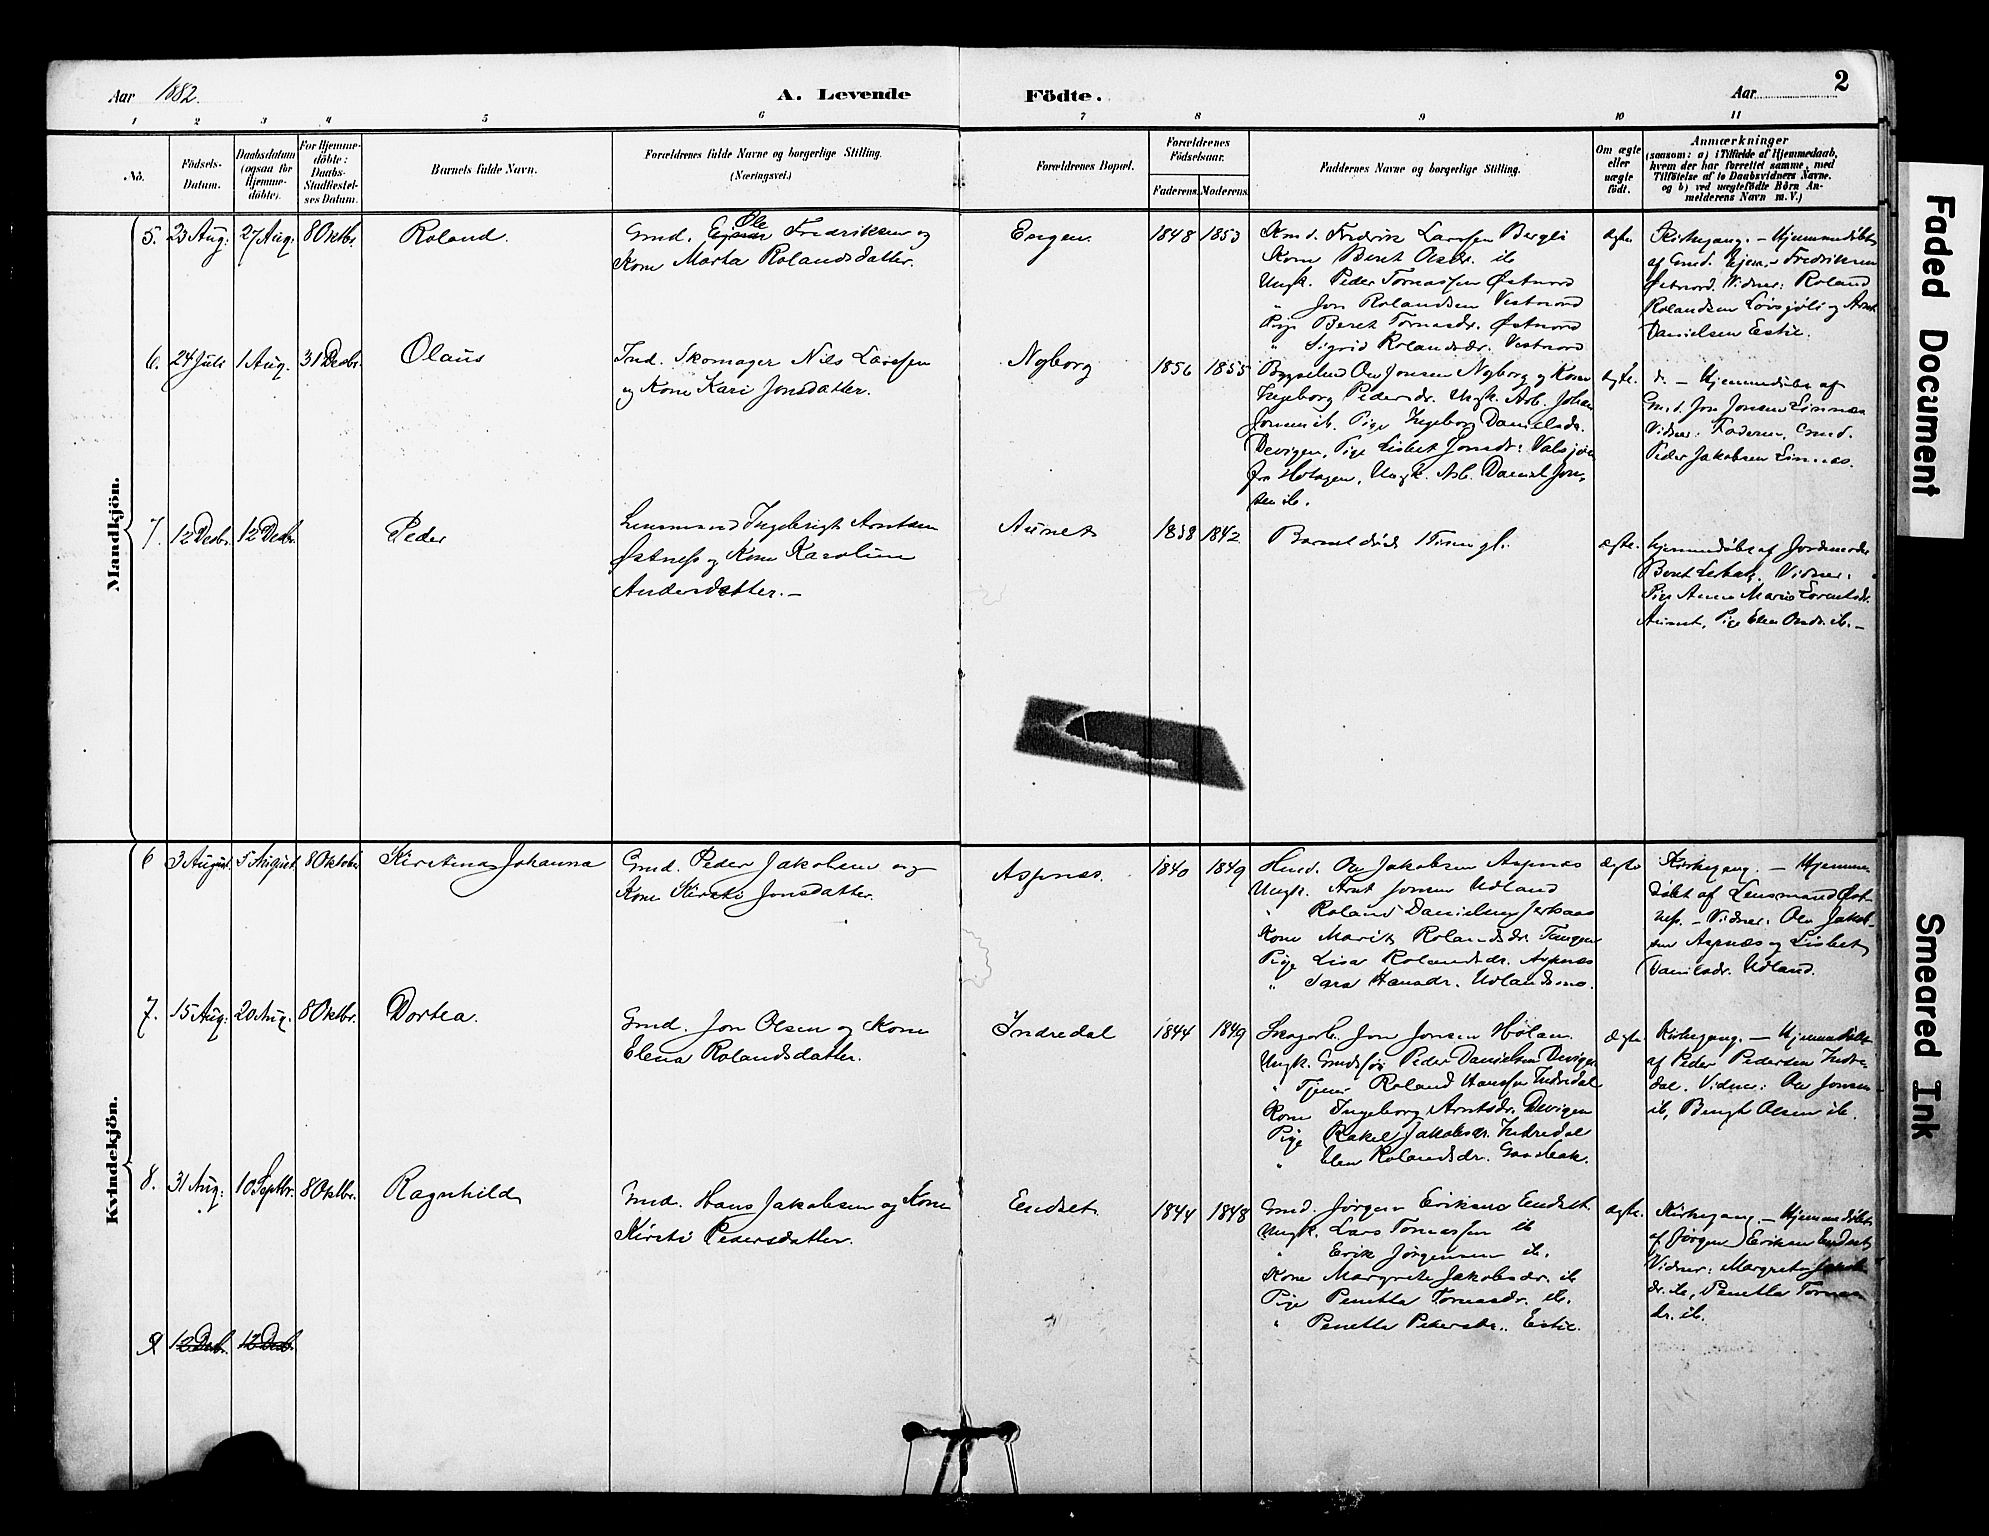 Aar 1882.
A. Levende
Födte.
Aar
2
1 2 3 4 5 6 7 8 9 10 11
No.
Födsels-
Datum.
Daabsdatum
(ogsaa for
Hjemme-
döbte).
For Hjemme-
döbte:
Daabs-
Stadfæstel-
ses Datum.
Barnets fulde Navn.
Forældrenes fulde Navne og borgerlige Stilling.
(Næringsvei.)
Forældrenes Bopæl.
Forældrenes
Födselsaar.
Faderens. Moderens.
Faddernes Navne og borgerlige Stilling.
Om ægte
eller
uægte
födt.
Anmærkninger
(saasom: a) i Tilfælde af Hjemmedaab,
hvem der har forrettet samme, med
Tilföielse af to Daabsvidners Navne.
og b) ved uægtefödte Börn An-
melderens Navn m. V.)
Mandkjön.
5. 23 Aug: 27 Aug. 8 Oktbr.
Roland.
Gmd. Ole Fredriksen og
Kone Marta Rolandsdatter.
Engen.
1848 1853
Gmd. Fredrik Larssen Bergli
Kone Beret Olsdr. ib
Ungk. Peder Tomassen Østnord
" Jon Rolandsen Vestnord
Pige Beret Tomasdr. Østnord
" Sigrid Rolandsdr. Vestnord
ægte
Kirkegang. – Hjemmedöbt
af Gmd. Fredriksen
Østnord. Vidner: Roland
Rolandsen og Arnt
Danielsen Estil.
6. 24 Juli 1 Aug. 31 Decbr.
Olaus
Ind. Skomager Nils Larssen
og Kone Kari Jonsdatter.
Nyborg
1856 1855
Bygselmd Ole Jonsen Nyborg og Kone
Ingeborg Pedersdr. Ungk. Arb. Johan
Jonsen ib. Pige Ingeborg Danielsdr.
Devigen, Pige Lisbet Jonsdr: Valsjöen
fra Hotagen, Ungk. Arb. Daniel Jon-
sen ib.
ægte.
d. – Hjemmedöbt af
Gmd. Jon Jonsen Linnæs
Vidner: Faderen, Gmd.
Peder Jakobsen Linnæs.
7. 12 Decbr. 12 Decbr.
Peder
Lensmand Ingebrigt Arntsen
Østness og Kone Karoline
Andersdatter. –
Aunet
1838 1842
Barnet döde 1 Time gl.
ægte.
hjemmedöbt af Jordemoder
Beret Lerbak. Vidner:
Pige Anne Marie Lorntsdr.
Aunet, Pige Elen Olsdr. ib. –
Kvindekjön.
6 3 August. 5 August. 8 Oktober.
Kirstina Johanna
Gmd. Peder Jakobsen og
Kone Kirsti Jonsdatter.
Aspnæs.
1840 1849
Hmd. Ole Jakobsen Aspnæs
Ungk. Arnt Jonsen Udland
" Roland Danielsen
Kone Marit Rolandsdr. Tangen
Pige Lisa Rolandsdr. Aspnæs
" Sara Hansdr. Udlandsmo.
Ægte
Kirkegang. – Hjemme-
döbt af Lensmand Øst-
ness. – Vidner: Ole Jakob-
sen Aspnæs og Lisbet
Danielsdr. Udland.
7. 15 Aug: 20 Aug. 8 Oktbr.
Dortea.
Gmd. Jon Olsen og Kone
Elena Rolandsdatter.
Indredal
1844 1849
Jon Jonsen Hølan.
Ungk. Peder Danielsen Devigen
" Tjener Roland Hanssen Indredal
Kone Ingeborg Arntsdr. Devigen
Pige Rakel Jakobsdr. Indredal
" Elen Rolandsdr.
Ægte
Kirkegang. – Hjemmedöbt
af Peder Pedersen Indre-
dal. Vidner: Ole Jonsen
ib, Bengt Olsen ib.
8. 31 Aug: 10 Septbr. 8 Oktbr.
Ragnhild
Gmd. Hans Jakobsen og Kone
Kirsti Pedersdatter.
Eendset
1844 1848
Gmd. Jörgen Eriksen Eendset
Ungk. Lars Tomassen ib
" Erik Jörgensen ib.
Kone Margrete Jakobsdr. ib
Pige Penetta Tomasdr. ib.
" Penetta Pedersdr. Estil.
ægte.
Kirkegang. – Hjemmedöbt
af Jörgen Eriksen Eendset
Vidner: Margrete Jakob-
dr. ib, Penetta Tomas-
dr. ib.
9 12 Decb. 12 Decb.
Faded Document
Smeared Ink